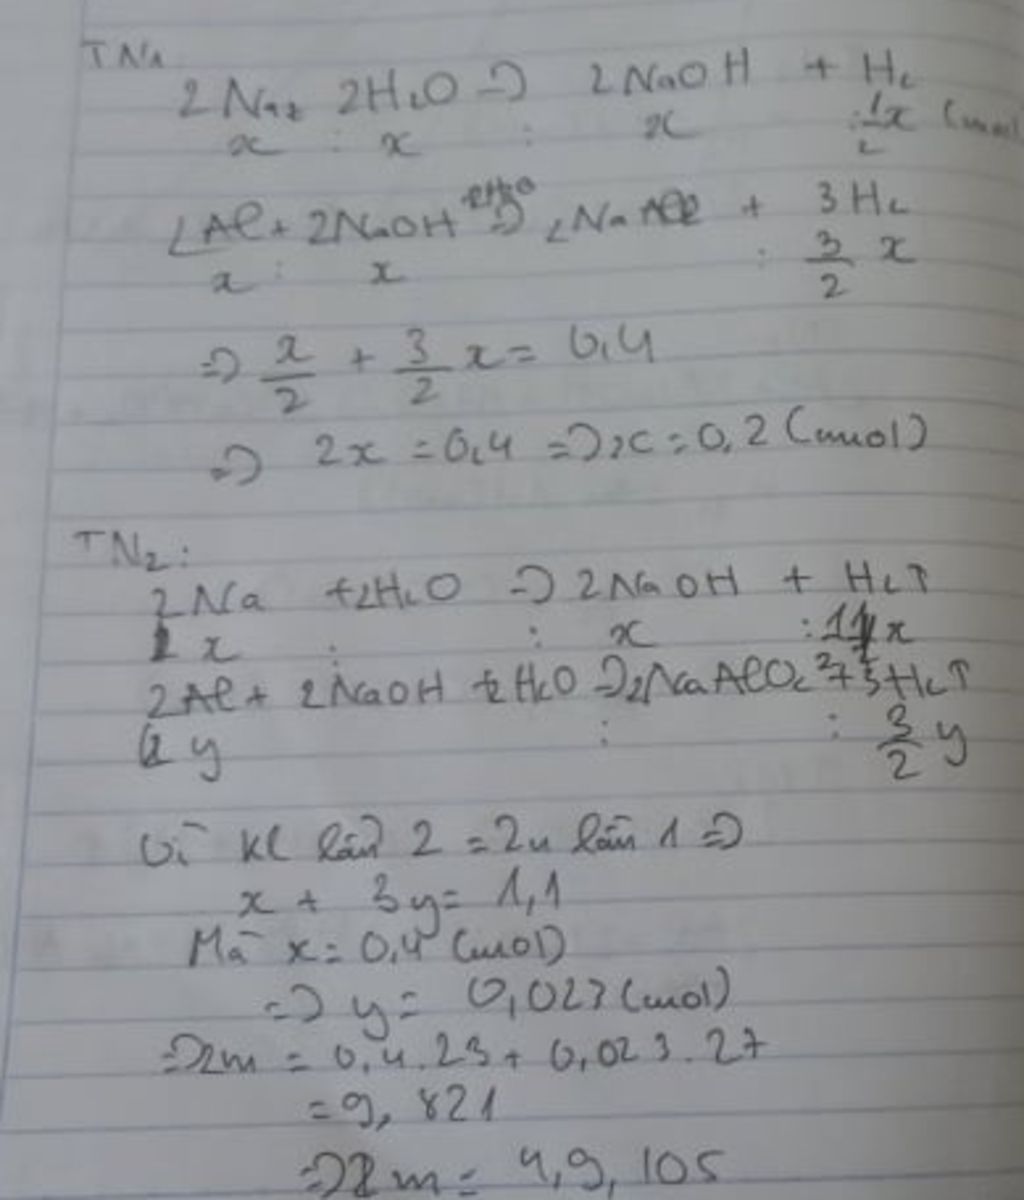 TN1
2Na+ 2H2O => 2NaOH + H2
x : x : x : 1/2 x (mol
2Al+ 2NaOH => 2NaAlO2 + 3H2
x : x : 3/2 x
=> x/2 + 3/2 x = 0,4
=> 2x = 0,4 => x = 0,2 (mol)
TN2:
2Na +2H2O => 2NaOH + H2↑
x : : x : x
2Al + 2NaOH + 2H2O => 2NaAlO2 + 3H2↑
y : : 3/2 y
Vì KL lần 2 = 2m lần 1 =>
x + 3y = 1,1
Mà x = 0,4 (mol)
=> y = 0,023 (mol)
=> 2m = 0,4.23 + 0,023.27
= 9,821
=> m = 4,9,105